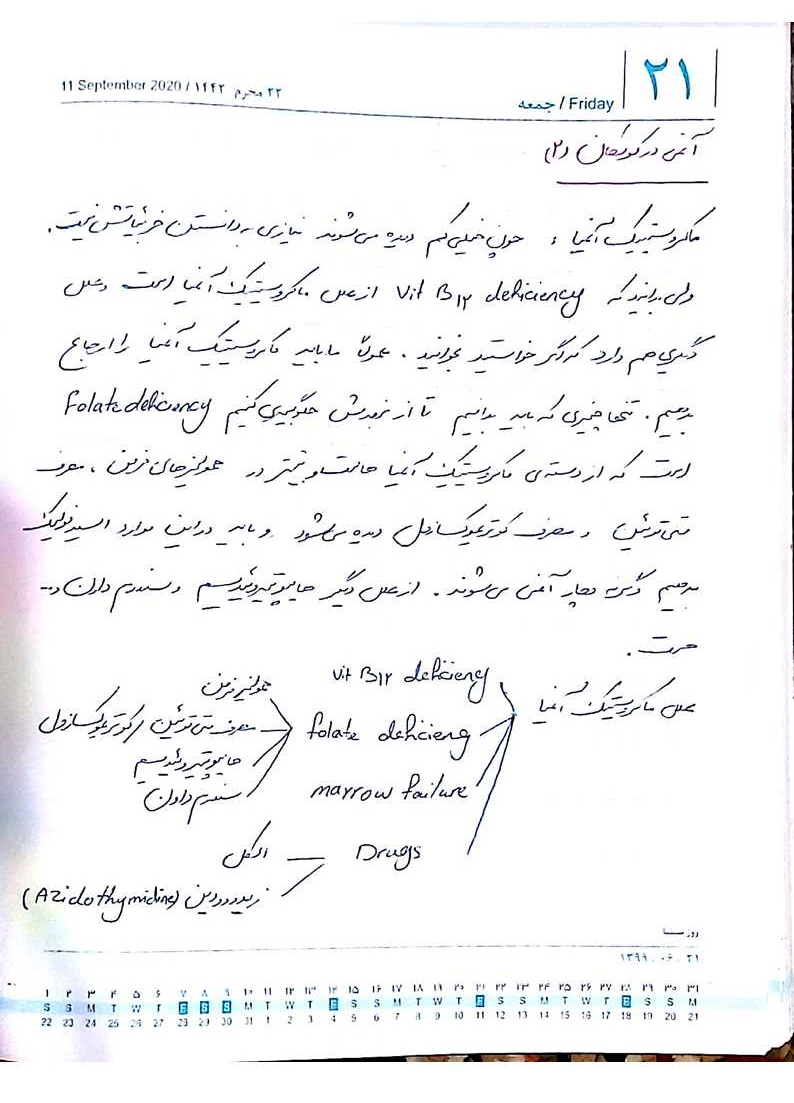 ۲۱
جمعه / Friday
11 September 2020 / ۱۴۴۲ محرم ۲۲
آنمی در کودکان (۲)
ماکروسیتیک آنمیا : چون خیلی کم دیده می‌شوند نیازی به دانستن جزئیاتش نیست.
ولی بدانید که Vit B12 deficiency از علل ماکروسیتیک آنمیا است و علل
دیگری هم دارد که اگر خواستید بخوانید . عموماً ما باید ماکروسیتیک آنمیا را ارجاع
بدهیم . تنها چیزی که باید بدانیم تا از بروزش جلوگیری کنیم Folate deficiency
است که از دسته‌ی ماکروسیتیک آنمیا هاست و بیشتر در همولیزهای مزمن ، مصرف
فنی‌توئین و مصرف کوتریموکسازول دیده می‌شود و باید در این موارد اسید فولیک
بدهیم وگرنه دچار آنمی می‌شوند . از علل دیگر هایپوتیروئیدیسم و سندرم داون و...
هست .
علل ماکروسیتیک آنمیا
Vit B12 deficiency
folate deficieng
همولیز مزمن
مصرف فنی‌توئین / کوتریموکسازول
هایپوتیروئیدیسم
سندرم داون
marrow failure
Drugs
الکل
زیدوودین (Azidothymidine)
۱۳۹۹ . ۰۶ . ۲۱
۱ ۲ ۳ ۴ ۵ ۶ ۷ ۸ ۹ ۱۰ ۱۱ ۱۲ ۱۳ ۱۴ ۱۵ ۱۶ ۱۷ ۱۸ ۱۹ ۲۰ ۲۱ ۲۲ ۲۳ ۲۴ ۲۵ ۲۶ ۲۷ ۲۸ ۲۹ ۳۰ ۳۱
S S M T W T F S S M T W T F S S M T W T F S S M T W T F S S M
22 23 24 25 26 27 28 29 30 31 1 2 3 4 5 6 7 8 9 10 11 12 13 14 15 16 17 18 19 20 21